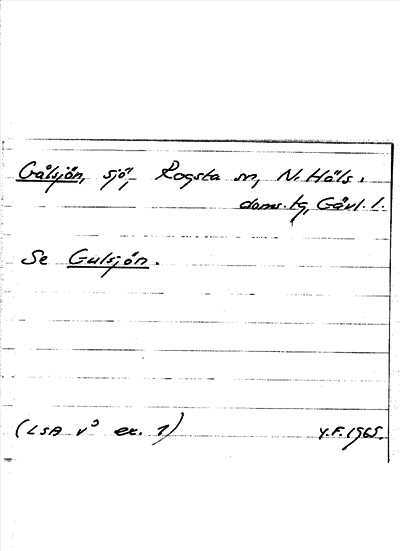 Gålsjön, sjö, Rogsta sn, N. Häls.
doms.tg, Gävl. l.
Se Gulsjön.
(LSA v³ ex. 1) Y.F. 1965.